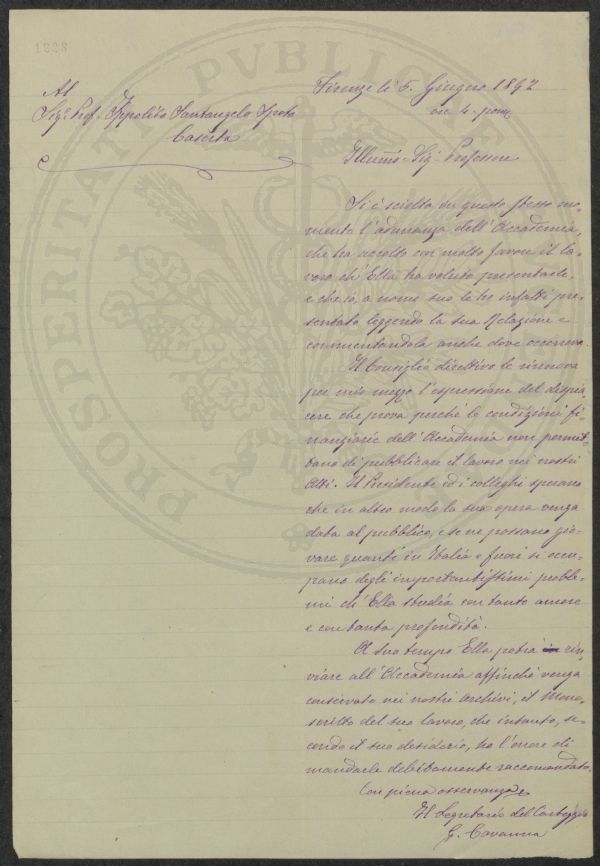 1228
Firenze lì 5. Giugno 1892
ore 4. pom
Al
Sigr. Prof. Ippolito Santangelo Spoto
Caserta
Illumo. Sigr. Professore
Si è sciolta in questo stesso mo-
mento l'adunanza dell'Accademia,
che ha accolto con molto favore il la-
voro ch'Ella ha voluto presentarle
e che io, a nome suo le ho infatti pre-
sentato leggendo la sua Relazione e
commentandola anche dove occorreva.
Il Consiglio direttivo le rinnova
per mio mezzo l'espressione del dispia-
cere che prova perchè le condizioni fi-
nanziarie dell'Accademia non permet-
tano di pubblicare il lavoro nei nostri
Atti. Il Presidente ed i colleghi sperano
che in altro modo la sua opera venga
data al pubblico, e se ne possano gio-
vare quanti in Italia e fuori si occu-
pano degli importantissimi proble-
mi ch'Ella studia con tanto amore
e con tanta profondità.
A suo tempo Ella potrà rin-
viare all'Accademia affinchè venga
conservato nei nostri Archivi, il Mano-
scritto del suo lavoro, che intanto, se-
condo il suo desiderio, ho l'onore di
mandarle debitamente raccomandato.
Con piena osservanza
Il Segretario del Carteggio
G. Cavanna
PROSPERITATI PVBLICAE